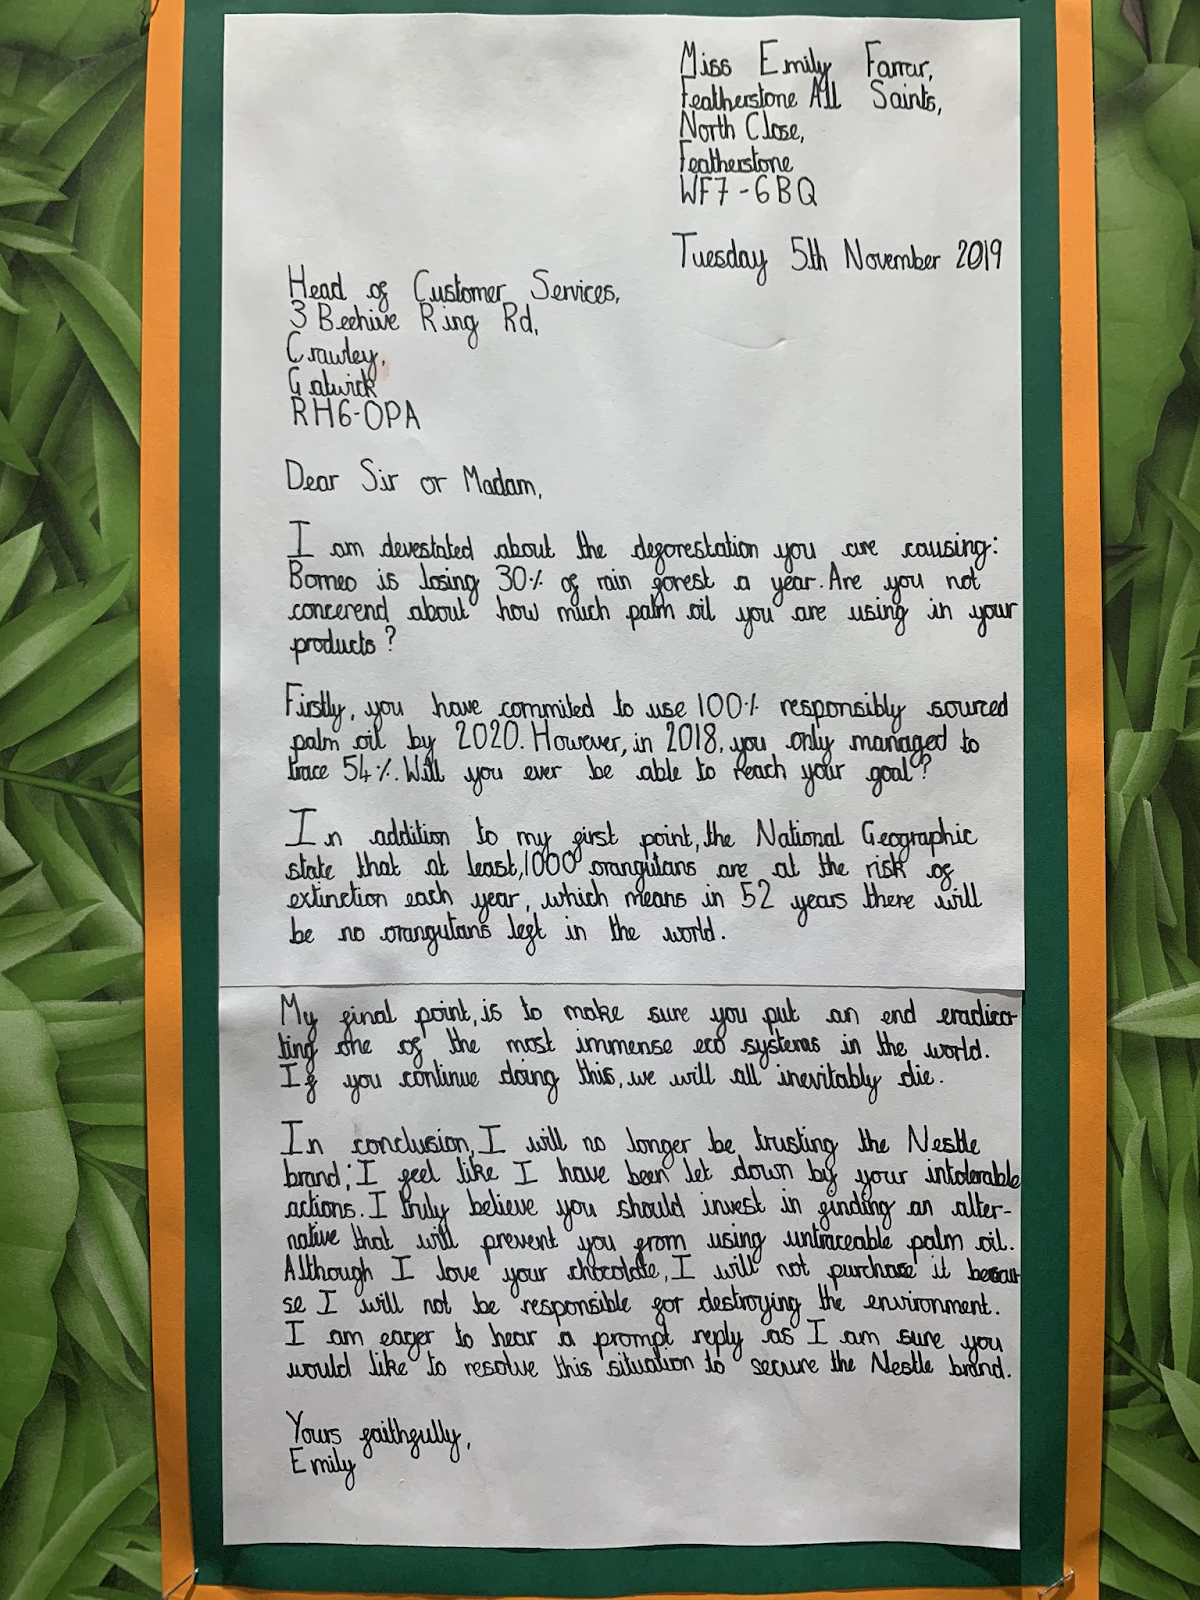 Miss Emily Farrar,
Featherstone All Saints,
North Close,
Featherstone
WF7-6BQ
Tuesday 5th November 2019
Head of Customer Services,
3 Beehive Ring Rd,
Crawley,
Gatwick
RH6-0PA
Dear Sir or Madam,
I am devestated about the deforestation you are causing:
Borneo is losing 30% of rain forest a year. Are you not
concerend about how much palm oil you are using in your
products?
Firstly, you have commited to use 100% responsibly sourced
palm oil by 2020. However, in 2018, you only managed to
trace 54%. Will you ever be able to reach your goal?
In addition to my first point, the National Geographic
state that at least, 1000 orangutans are at the risk of
extinction each year, which means in 52 years there will
be no orangutans left in the world.
My final point, is to make sure you put an end eradica-
ting one of the most immense eco systems in the world.
If you continue doing this, we will all inevitably die.
In conclusion, I will no longer be trusting the Nestle
brand; I feel like I have been let down by your intolerable
actions. I truly believe you should invest in finding an alter-
native that will prevent you from using untraceable palm oil.
Although I love your chocolate, I will not purchase it becau-
se I will not be responsible for destroying the environment.
I am eager to hear a prompt reply as I am sure you
would like to resolve this situation to secure the Nestle brand.
Yours faithfully,
Emily